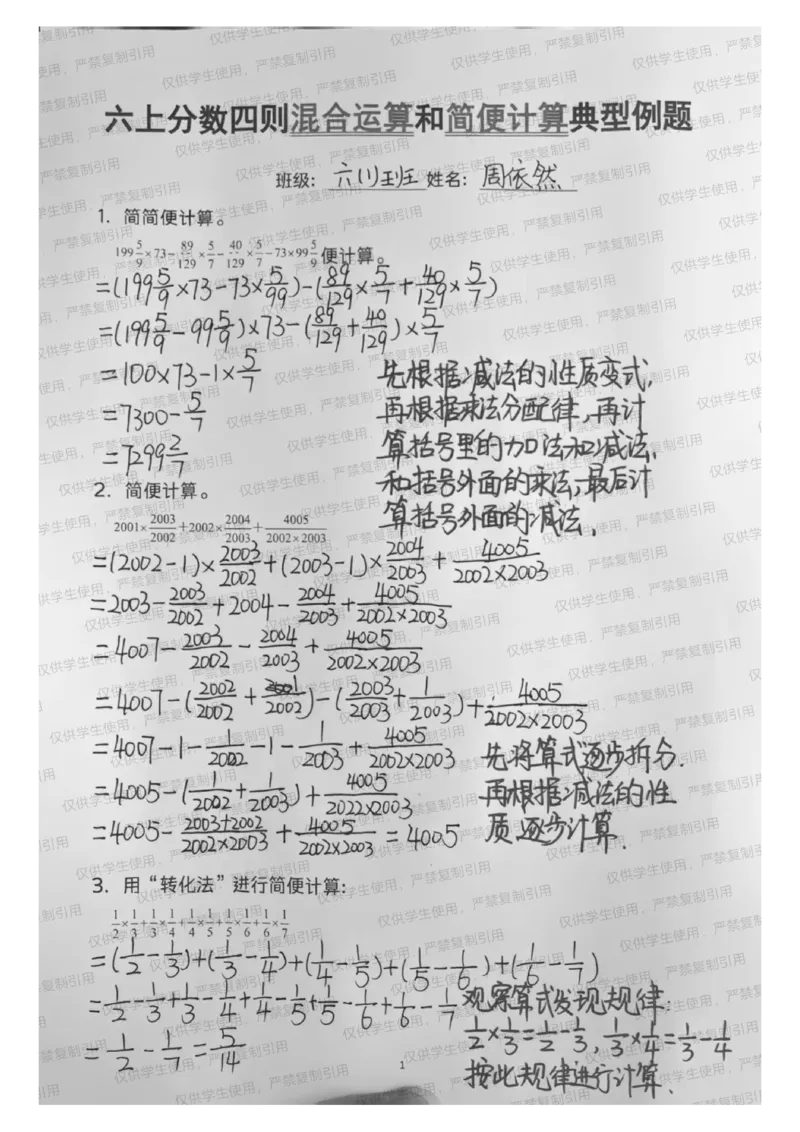 六上分数四则混合运算和简便计算典型例题
班级：六(1)班 姓名：周依然
1．简简便计算。
199 5/9×73－89/129×5/7－40/129×5/7－73×99 5/9 便计算。
=(199 5/9×73-73×5/99)-(89/129×5/7+40/129×5/7)
=(199 5/9-99 5/9)×73-(89/129+40/129)×5/7
=100×73-1×5/7
=7300-5/7
=7299 2/7
先根据减法的性质变式,
再根据乘法分配律,再计
算括号里的加法和减法,
和括号外面的乘法,最后计
算括号外面的减法.
2．简便计算。
2001×2003/2002+2002×2004/2003+4005/2002×2003
=(2002-1)×2003/2002+(2003-1)×2004/2003+4005/2002×2003
=2003-2003/2002+2004-2004/2003+4005/2002×2003
=4007-2003/2002-2004/2003+4005/2002×2003
=4007-(2002/2002+1/2002)-(2003/2003+1/2003)+4005/2002×2003
=4007-1-1/2002-1-1/2003+4005/2002×2003
=4005-(1/2002+1/2003)+4005/2022×2003
=4005-2003+2002/2002×2003+4005/2002×2003=4005
先将算式逐步拆分.
再根据减法的性
质,逐步计算.
3．用“转化法”进行简便计算:
1/2×1/3+1/3×1/4+1/4×1/5+1/5×1/6+1/6×1/7
=(1/2-1/3)+(1/3-1/4)+(1/4-1/5)+(1/5-1/6)+(1/6-1/7)
=1/2-1/3+1/3-1/4+1/4-1/5+1/5-1/6+1/6-1/7
=1/2-1/7=5/14
观察算式发现规律:
1/2×1/3=1/2-1/3,1/3×1/4=1/3-1/4
按此规律进行计算.
1
仅供学生使用，严禁复制引用